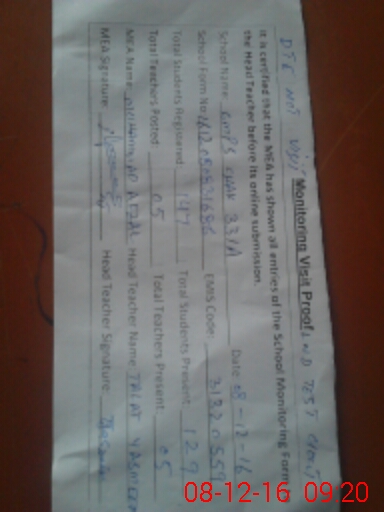 DTE NOT Visit Monitoring Visit Proof LND TEST
It is certified that the MEA has shown all entries of the School Monitoring Form to
the Head Teacher before its online submission.
School Name: GMPS CHAK 33/A Date: 08-12-16
School Form No EMIS Code: 31320559
Total Students Registered: 147 Total Students Present: 129
Total Teachers Posted: 05 Total Teachers Present: 05
MEA Name: MUHAMMAD AFZAL Head Teacher Name: TALAT YASMEEN
MEA Signature: Head Teacher Signature:
08-12-16 09:20